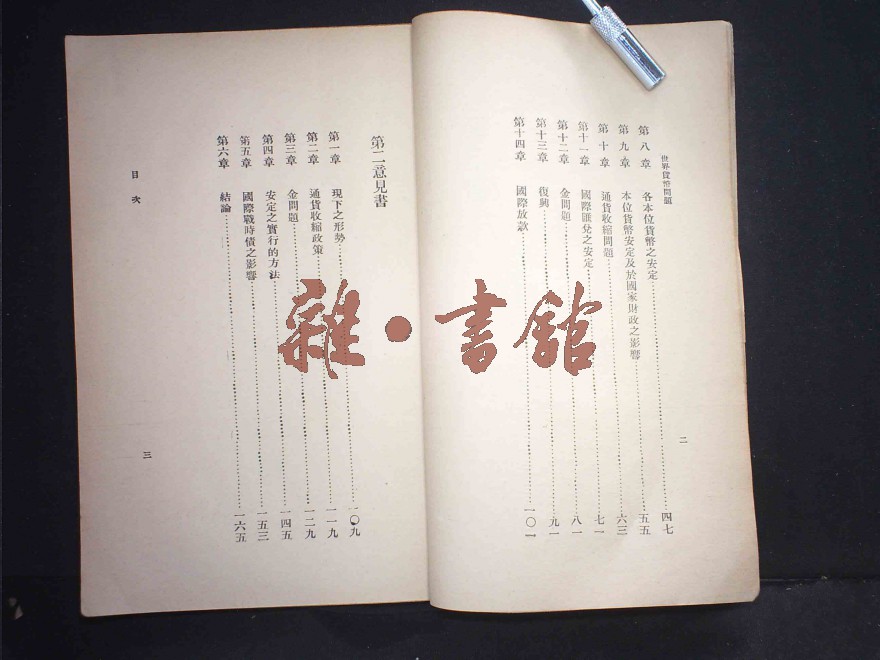 世界貨幣問題
第八章　各本位貨幣之安定……四七
第九章　本位貨幣安定及於國家財政之影響……五五
第十章　通貨收縮問題……六三
第十一章　國際匯兌之安定……七一
第十二章　金問題……八一
第十三章　復興……九一
第十四章　國際放款……一〇一
二
第二意見書
第一章　現下之形勢……一〇九
第二章　通貨收縮政策……一一九
第三章　金問題……一二九
第四章　安定之實行的方法……一四五
第五章　國際戰時債之影響……一五三
第六章　結論……一六五
目次
三
雜·書館